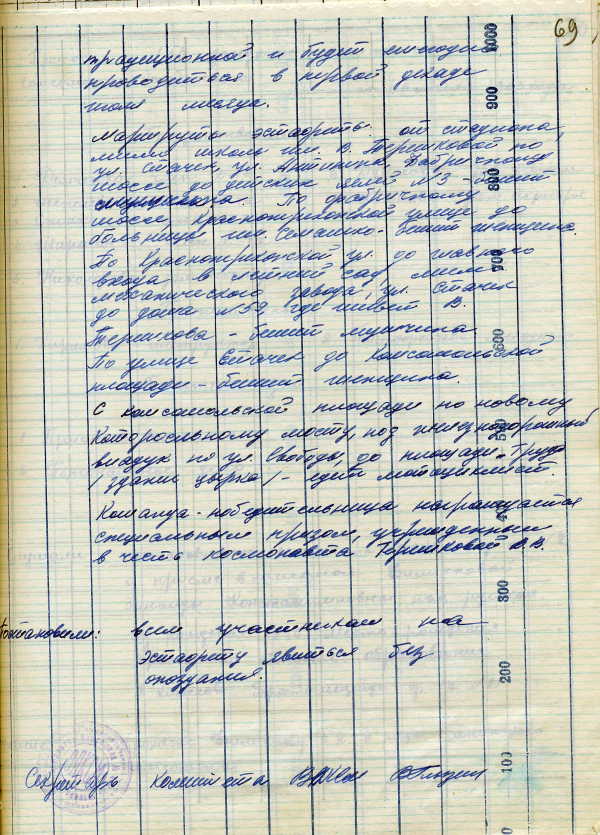 69
традиционной и будет ежегодно
проводиться в первой декаде
июля месяца.
Маршруты эстафеты: от стадиона,
мимо школы им. В. Терешковой по
ул. Стачек, ул. Фабричному
шоссе до детских яслей №3 - бежит
мужчина. По фабричному
шоссе, Красноприбойской улице до
больницы им. Семашко - бежит женщина.
По ул. до главного
входа в летний сад мимо
механического завода, ул. Стачек
до дома №59, где живет В.
Терешкова - бежит мужчина
По улице Стачек до Комсомольской
площади - бежит женщина.
С комсомольской площади по новому
Которосльному мосту, под железнодорожный
виадук по ул. Свободы, до площади Труда
/ здание цирка / - едет мотоциклист.
Команда - победительница награждается
специальным призом, учрежденным
в честь космонавта Терешковой В.В.
Постановили: всем участникам на
эстафету явиться без
опоздания.
Секретарь комитета ВЛКСМ
1000
900
800
700
600
500
400
300
200
100